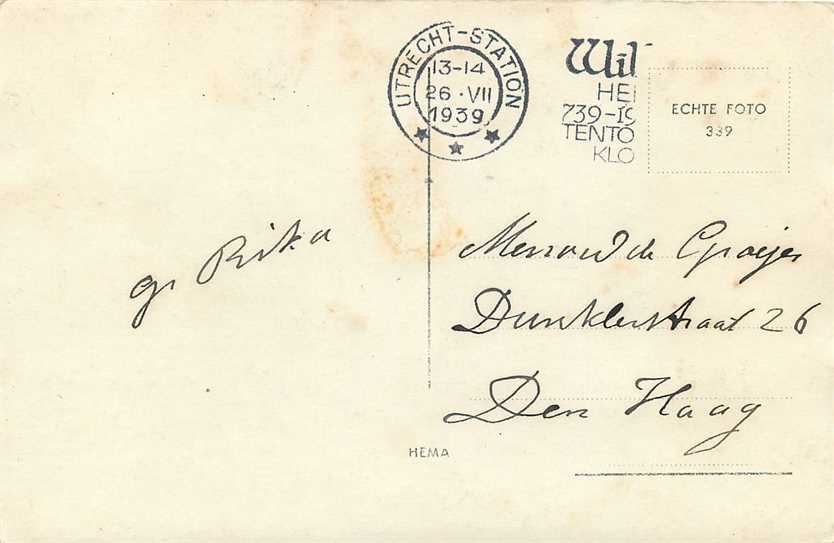 UTRECHT-STATION
13-14
26 · VII
1939
Wil
HE
739-19
TENTO
KLO
ECHTE FOTO
339
gr Rika
de Graijer
Dunklerstraat 26
Den Haag
HEMA